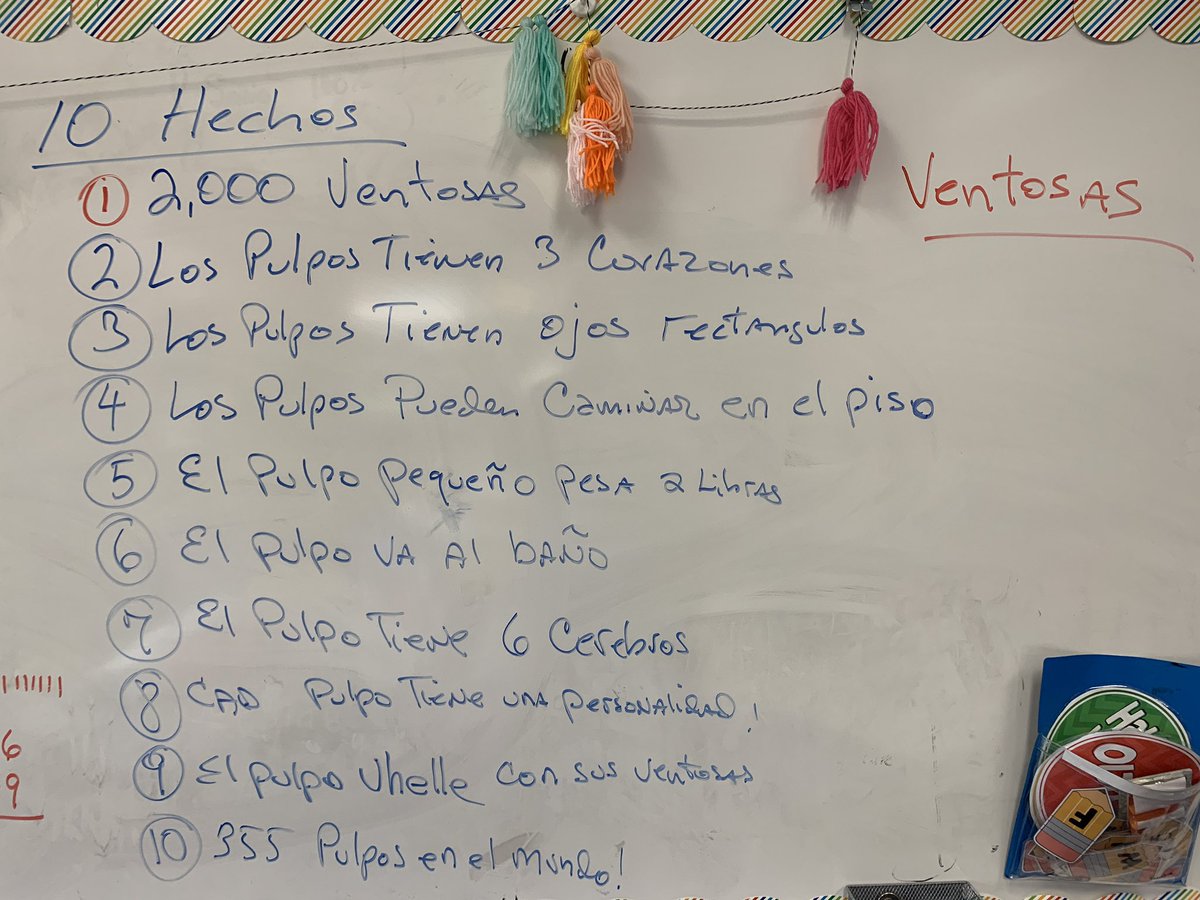 10 Hechos
① 2,000 Ventosas
Ventosas
② Los Pulpos Tienen 3 Corazones
③ Los Pulpos Tienen ojos rectangulos
④ Los Pulpos Pueden Caminar en el piso
⑤ El Pulpo pequeño pesa 2 Libras
⑥ El pulpo va al baño
⑦ El Pulpo Tiene 6 Cerebros
⑧ CAD Pulpo Tiene una personalidad!
⑨ El pulpo Uhelle con sus ventosas
⑩ 355 Pulpos en el mundo!
6
9
F